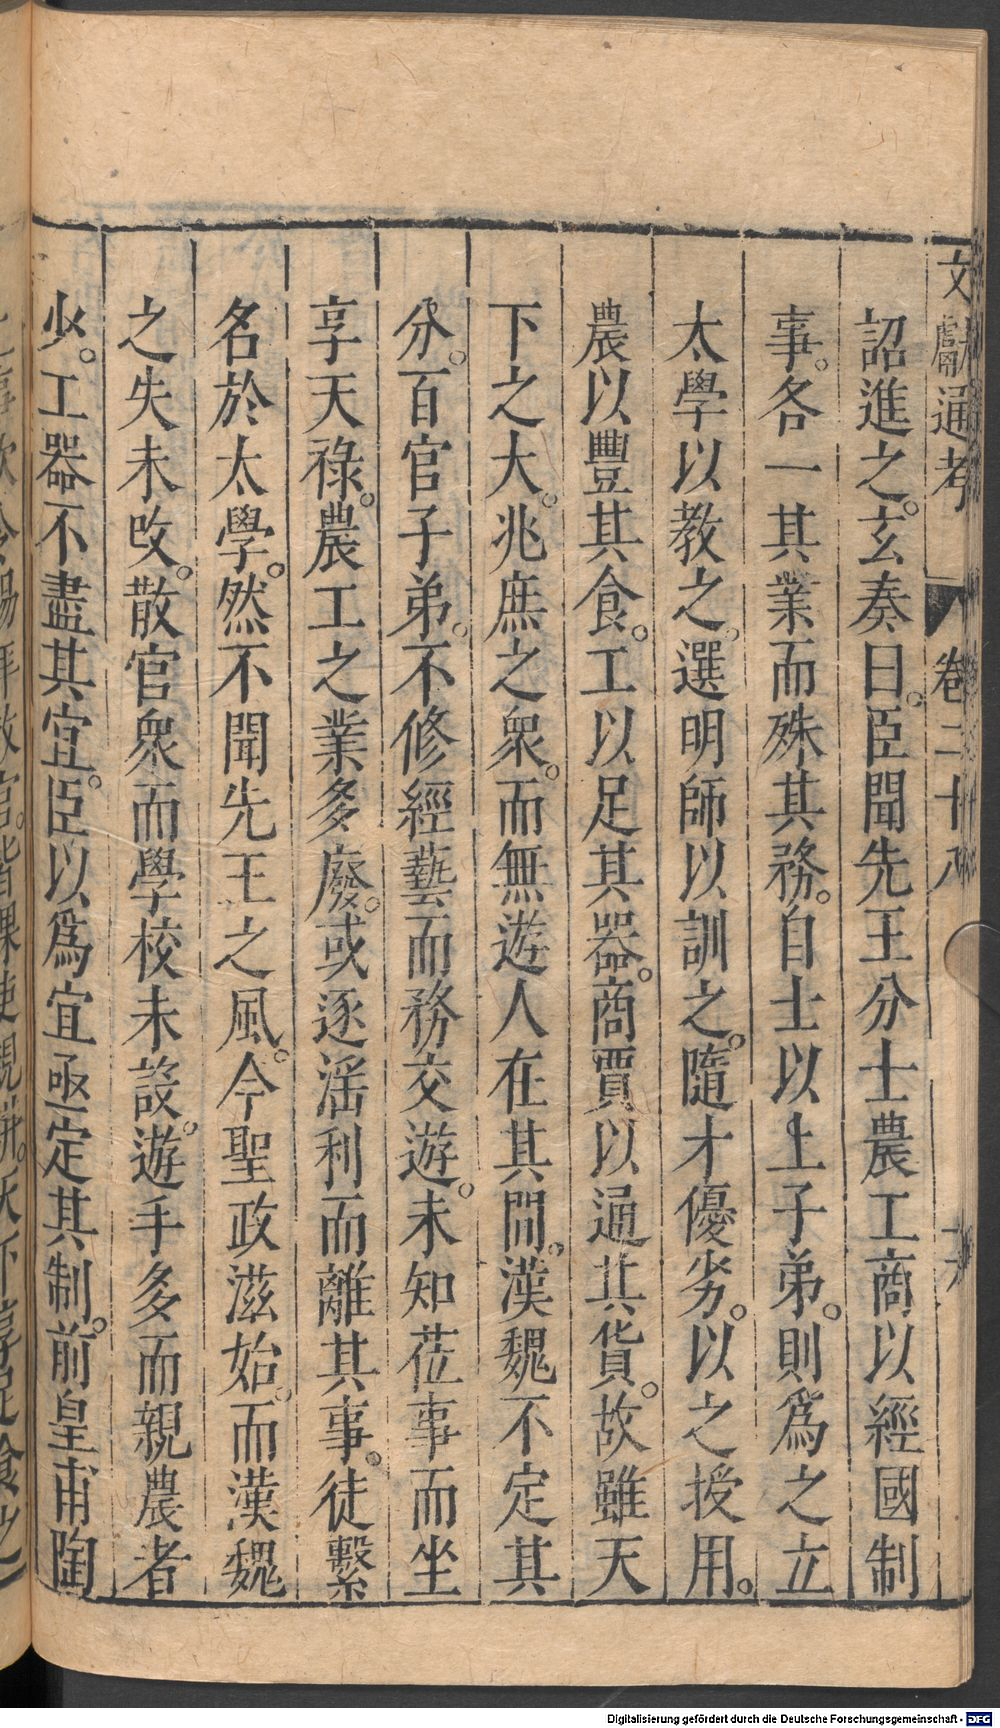 文獻通考 卷二十八
詔進之。玄奏曰。臣聞先王分士農工商以經國制
事。各一其業而殊其務。自士以上子弟。則爲之立
太學以教之。選明師以訓之。隨才優劣。以之授用。
農以豐其食。工以足其器。商賈以通其貨。故雖天
下之大。兆庶之衆。而無遊人在其間。漢魏不定其
分。百官子弟。不修經藝而務交遊。未知莅事而坐
享天祿。農工之業多廢。或逐滛利而離其事。徒繫
名於太學。然不聞先王之風。今聖政滋始。而漢魏
之失未改。散官衆而學校未設。遊手多而親農者
少。工器不盡其宜。臣以爲宜亟定其制。前皇甫陶
Digitalisierung gefördert durch die Deutsche Forschungsgemeinschaft - DFG